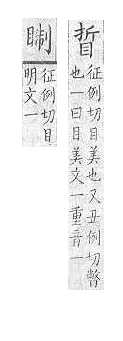 征例切目美也又丑例切瞥
也一曰目美文一重音一
征例切目
明文一